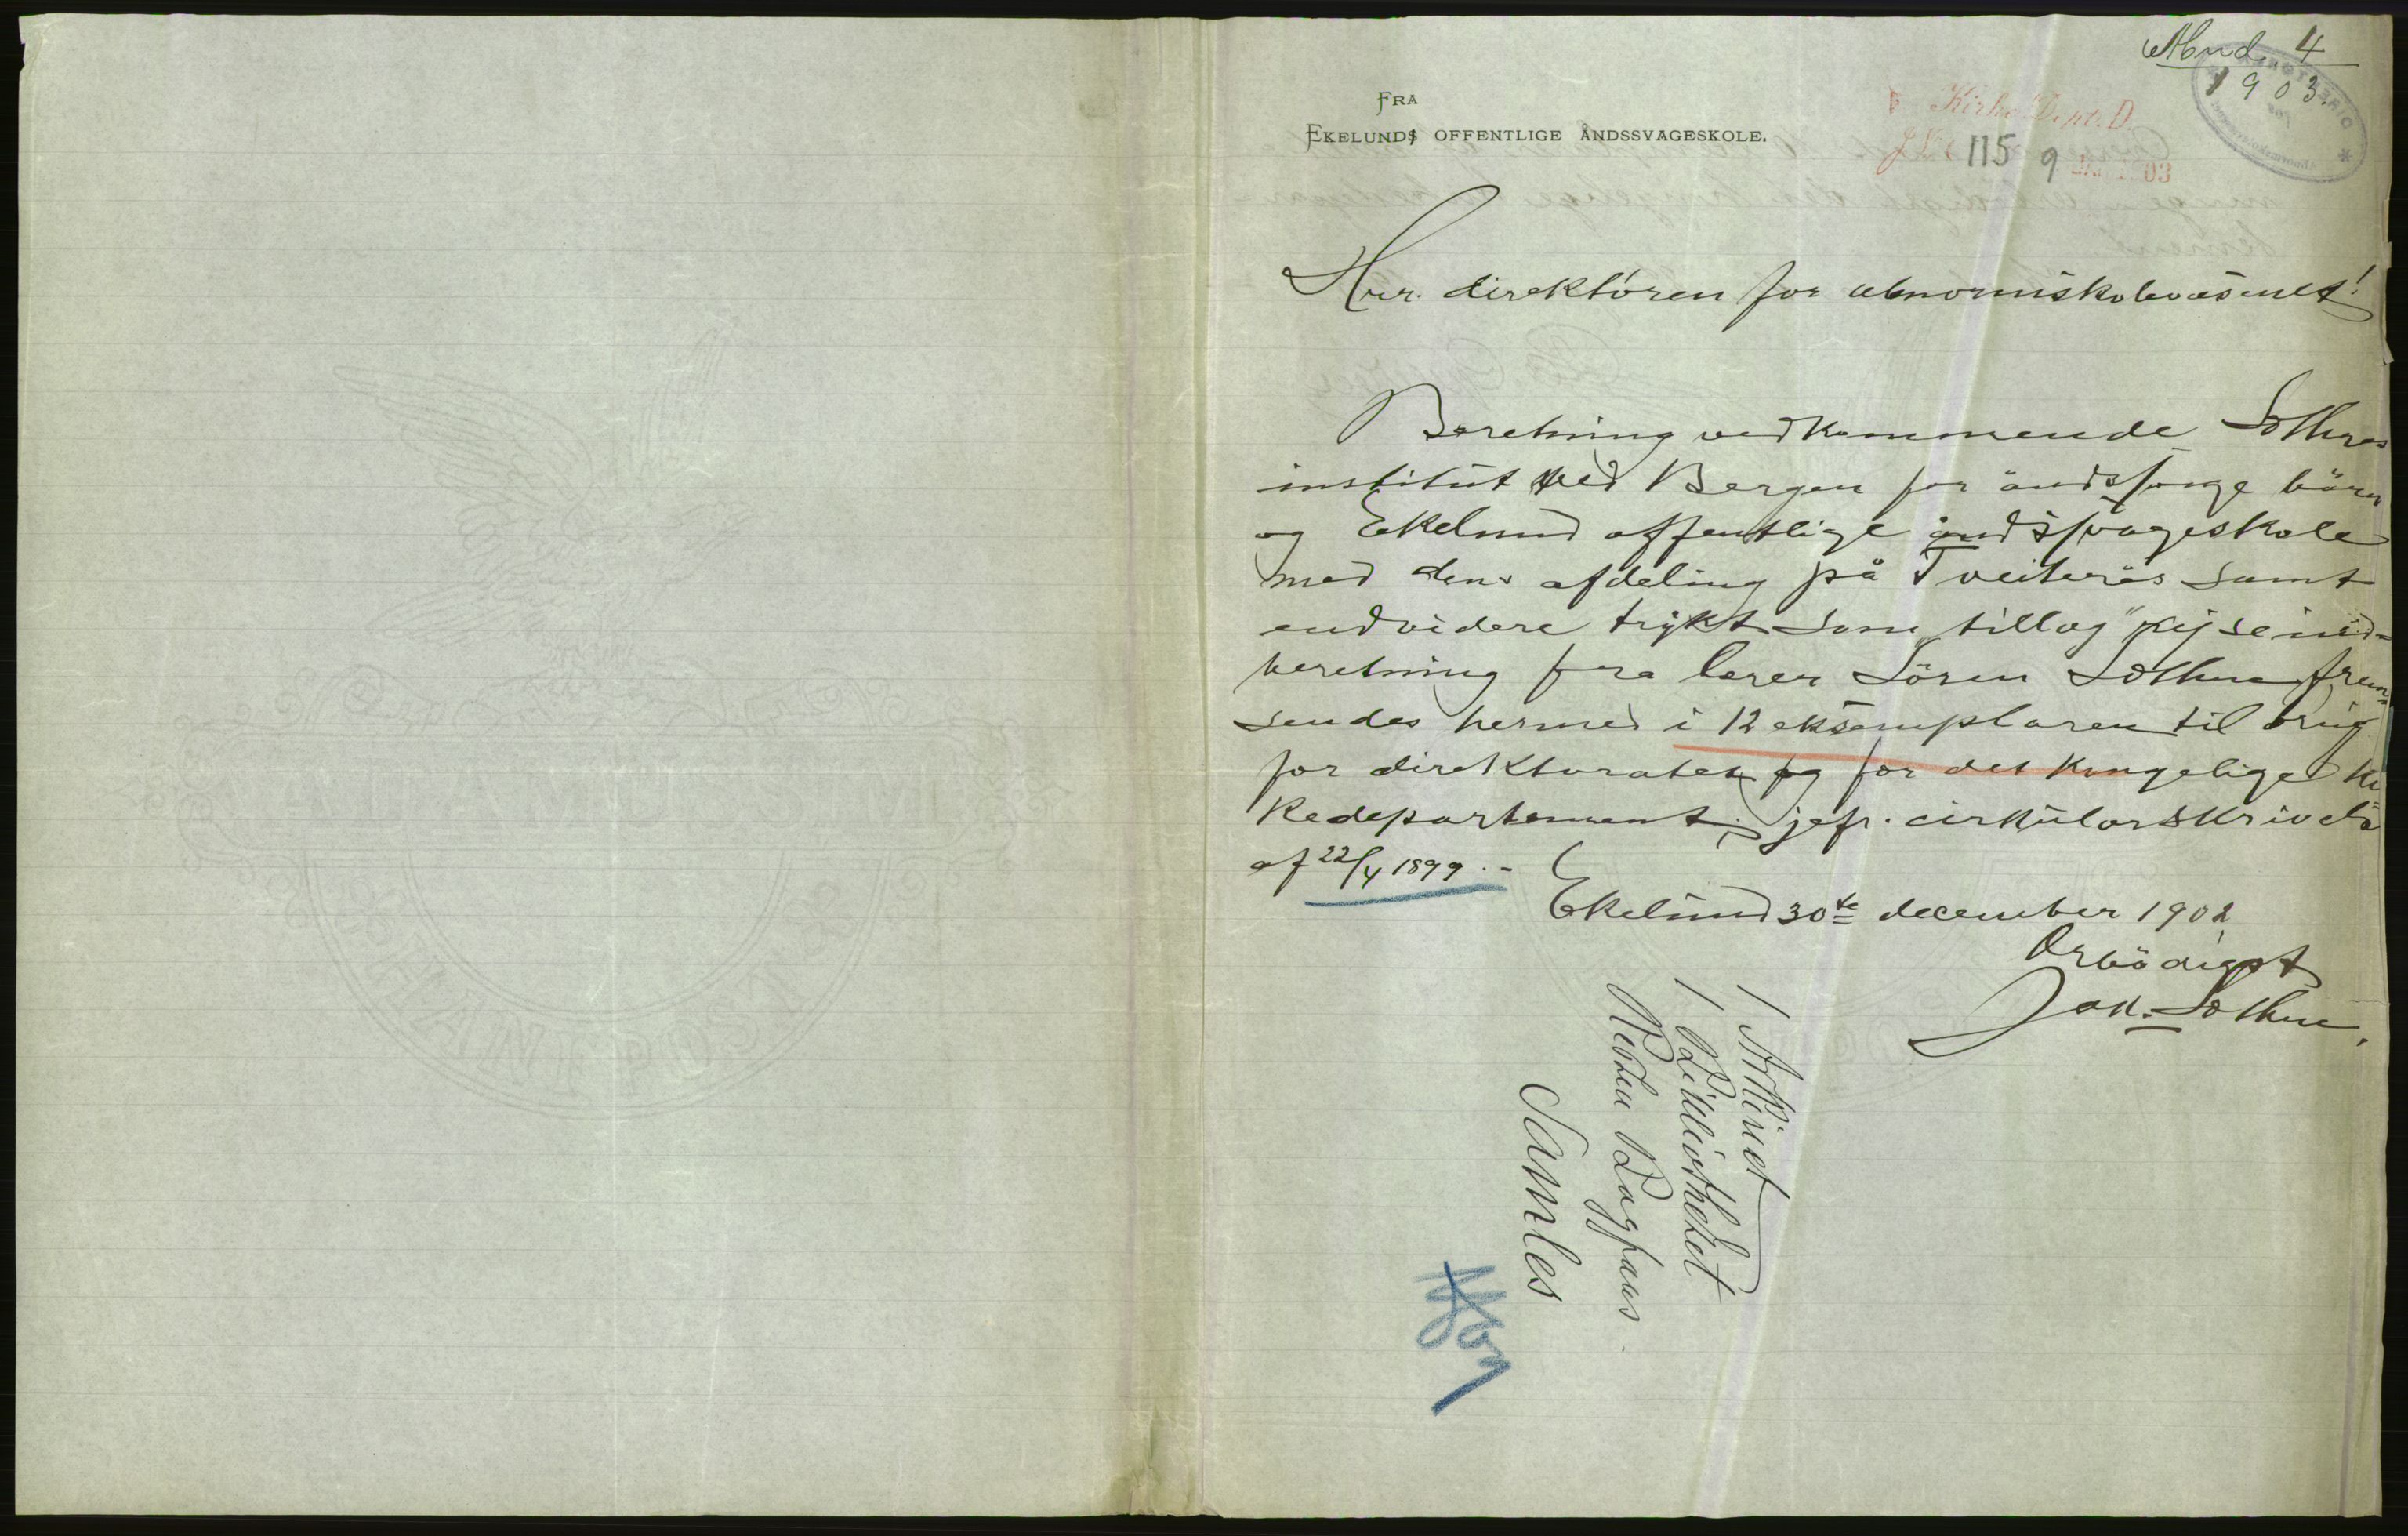 Abnd. 4
1903.
FRA
EKELUNDS OFFENTLIGE ÅNDSSVAGESKOLE.
Kirke Dept. D.
J. No 115 9 JAN 1903
Hrr. direktören for abnormskolevæsenet!
Beretning vedkommende Sothres
institut ved Bergen for åndssvage börn
og Ekelund offentlige åndssvageskole
med dens afdeling på Tveiterås samt
endvidere trykt som "tillæg" rejseind-
beretning fra lærer Sören Sothre frem-
sendes hermed i 12 eksemplarer til brug
for direktoratet og for det kongelige kir-
kedepartement, jefr. cirkulærskrivelse
af 22/4 1899.-
Ekelund 30te december 1902
Ærbödigst
Jak. Sothre.
1 Arkivet
1 Bibliotheket
Resten Dagfaus.
Samles